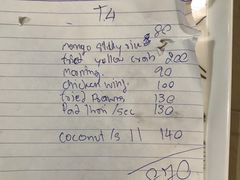 T4
mango stiky rice 80
fried yellow crab 200
morning. 90
chicken wing. 100
fried Prawns 130
Pad Thai /sec 130
coconut /s || 140
870